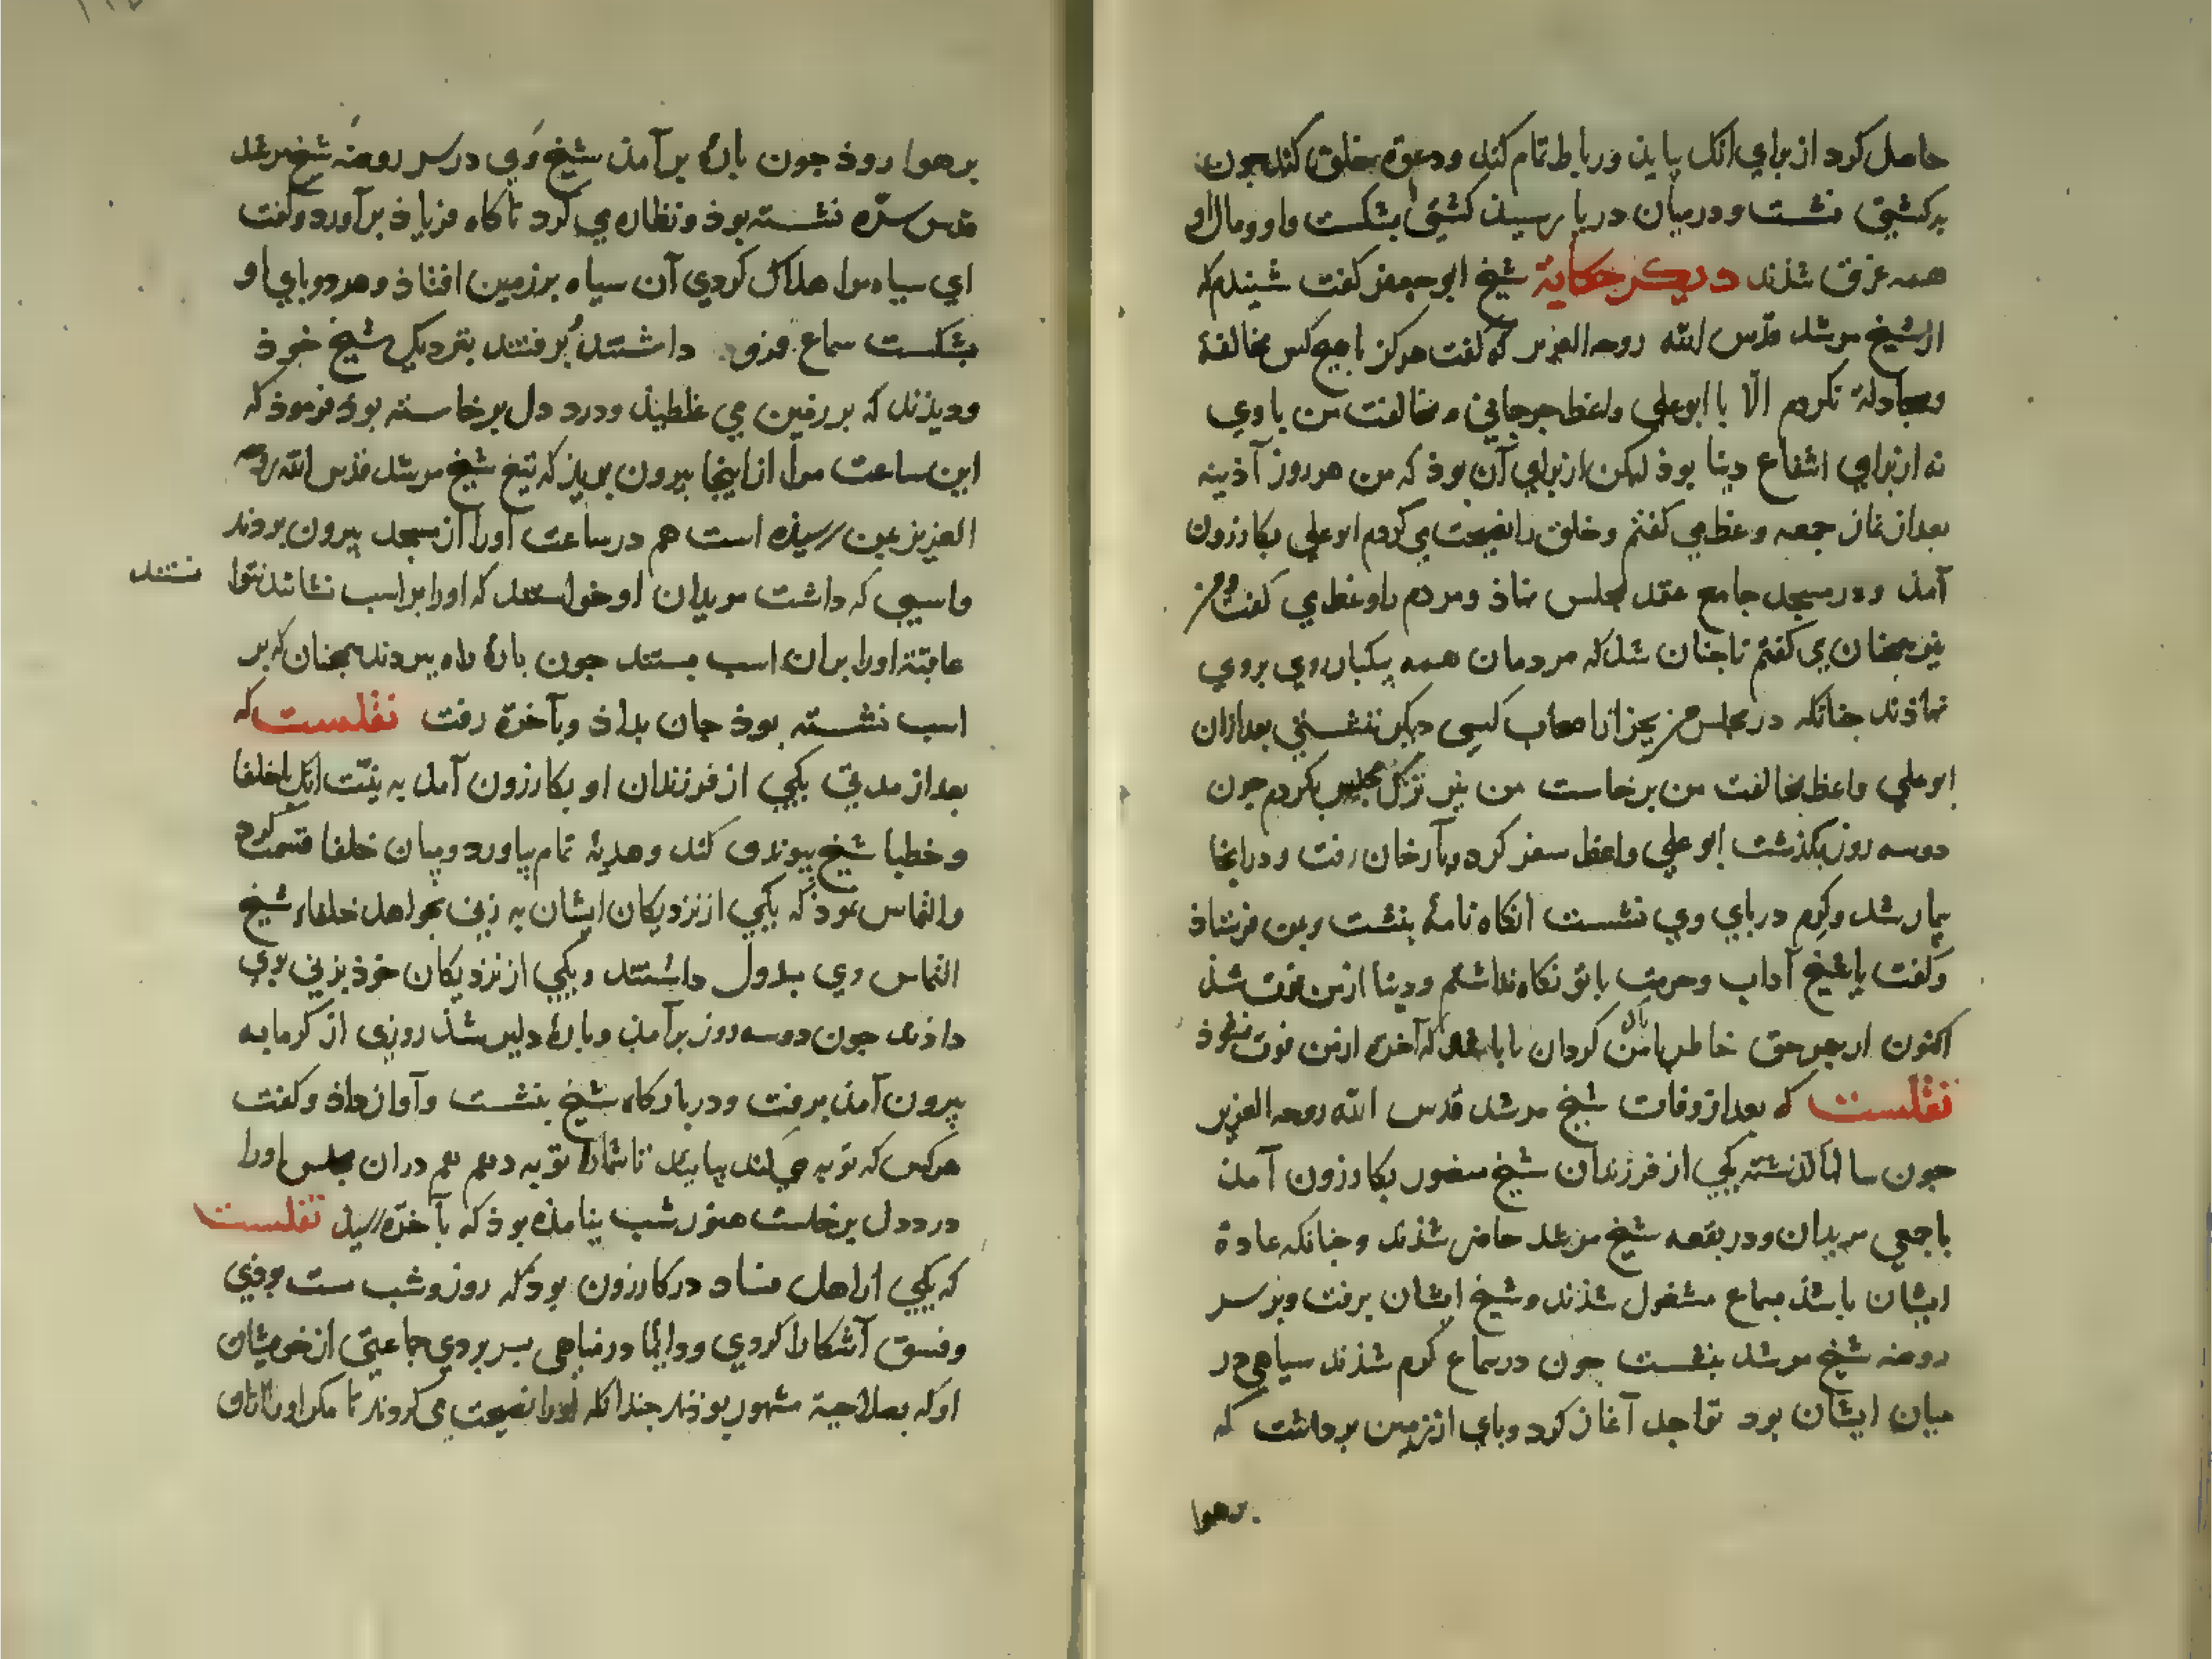 حاصل کرد از برای انک بیاید و رباط تمام کند و دعوة خلق کند جون
بر کشتی نشست و در میان دریا رسید کشتی بشکست و او و مال او
همه غرق شذند دیکر حکایة شیخ ابو جعفر کفت شنیدم که
از شیخ مرشد قدس الله روحه العزیز که کفت هرکز با هیج کس مخالفة
و مجادلة نکردم الّا با ابو علی واعظ جرجانی و مخالفت من با وی
نه از برای انتفاع دنیا بوذ لیکن از برای آن بوذ که من هر روز آذینه
بعد از نماز جمعه وعظ می کفتم و خلق را نصیحت می کردم ابو علی بکازرون
آمذ و در مسجد جامع عقد مجلس نهاذ و مردم را وعظ می کفت و من
نیز همجنان می کفتم تا جنان شد که مردمان همه بیکبار روی بروی
نهاذند جنانکه در مجلس من بجز از اصحاب کسی دیکر ننشستی بعد از آن
ابو علی واعظ بمخالفت من برخاست من نیز ترک مجلس بکردم جون
دو سه روز بکذشت ابو علی واعظ سفر کرد و بارخان رفت و در آنجا
بیمار شد و کرم در پای وی نشست انکاه نامۀ بنشت و بمن فرستاذ
و کفت یا شیخ آداب و حرمت با تو نکاه نداشتم و دنیا از من فوت شذ
اکنون از بهر حق خاطر با من کردان تا باشد که آخرة از من فوت نشوذ
نقلست که بعد از وفات شیخ مرشد قدس الله روحه العزیز
جون سالها کذشته یکی از فرزندان شیخ منصور بکازرون آمذ
با جمعی مریدان و در بقعه شیخ مرشد حاضر شذند و جنانکه عادة
ایشان باشذ بسماع مشغول شذند و شیخ ایشان برفت و بر سر
روضه شیخ مرشد بنشست جون در سماع کرم شذند سیاهی در
میان ایشان بود تواجد آغاز کرد و پای از زمین برداشت که
بر هوا
بر هوا روذ جون پارۀ بر آمذ شیخ وی در سر روضه شیخ مرشد
قدس سرّه نشسته بوذ و نظاره می کرد ناکاه فریاذ بر آورد و کفت
ای سیاه مرا هلاک کردی آن سیاه بر زمین افتاذ و هر دو پای او
بشکست سماع فرو داشتند برفتند بنزدیک شیخ خوذ
و دیذند که بر زمین می غلطیذ و درد دل برخاسته بوذ فرموذ که
این ساعت مرا از اینجا بیرون بریذ که تیغ شیخ مرشد قدس الله روحه
العزیز بمن رسیذه است هم در ساعت اورا از مسجد بیرون بردند
و اسبی که داشت مریدان او خواستند که اورا بر اسب نشانند نتوا
نستند
عاقبة اورا بر ان اسب بستند جون پارۀ راه ببردند همجنان که بر
اسب نشسته بوذ جان بداذ و بآخرة رفت نقلست که
بعد از مدتی یکی از فرزندان او بکازرون آمد به نیّت انک با خلفا
و خطبا شیخ پیوندی کند و هدیۀ تمام بیاورد و میان خلفا قسمت کرد
و التماس نموذ که یکی از نزدیکان ایشان به زنی بخواهد خلفاء شیخ
التماس وی مبذول داشتند و یکی از نزدیکان خوذ بزنی بوی
داذند جون دو سه روز بر آمذ و پارۀ دلیر شذ روزی از کرمابه
بیرون آمذ برفت و در بارکاه شیخ بنشست و آواز داذ و کفت
هر کس که توبه می کند بیاید تا شمارا توبه دهم هم در ان مجلس اورا
درد دل برخاست هنوز شب نیامذه بوذ که بآخرة رسید نقلست
که یکی از اهل فساد در کازرون بود که روز و شب مست بودی
و فسق آشکارا کردی و دایما در مناهی بسر بردی جماعتی از خویشان
او که بصلاحیة مشهور بوذند جندانکه اورا نصیحت می کردند تا مکر اورا از ان